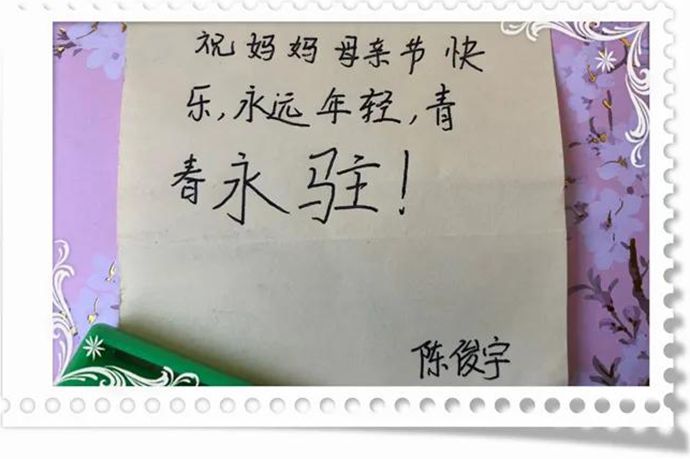 祝妈妈母亲节快
乐,永远年轻,青
春永驻!
陈俊宇